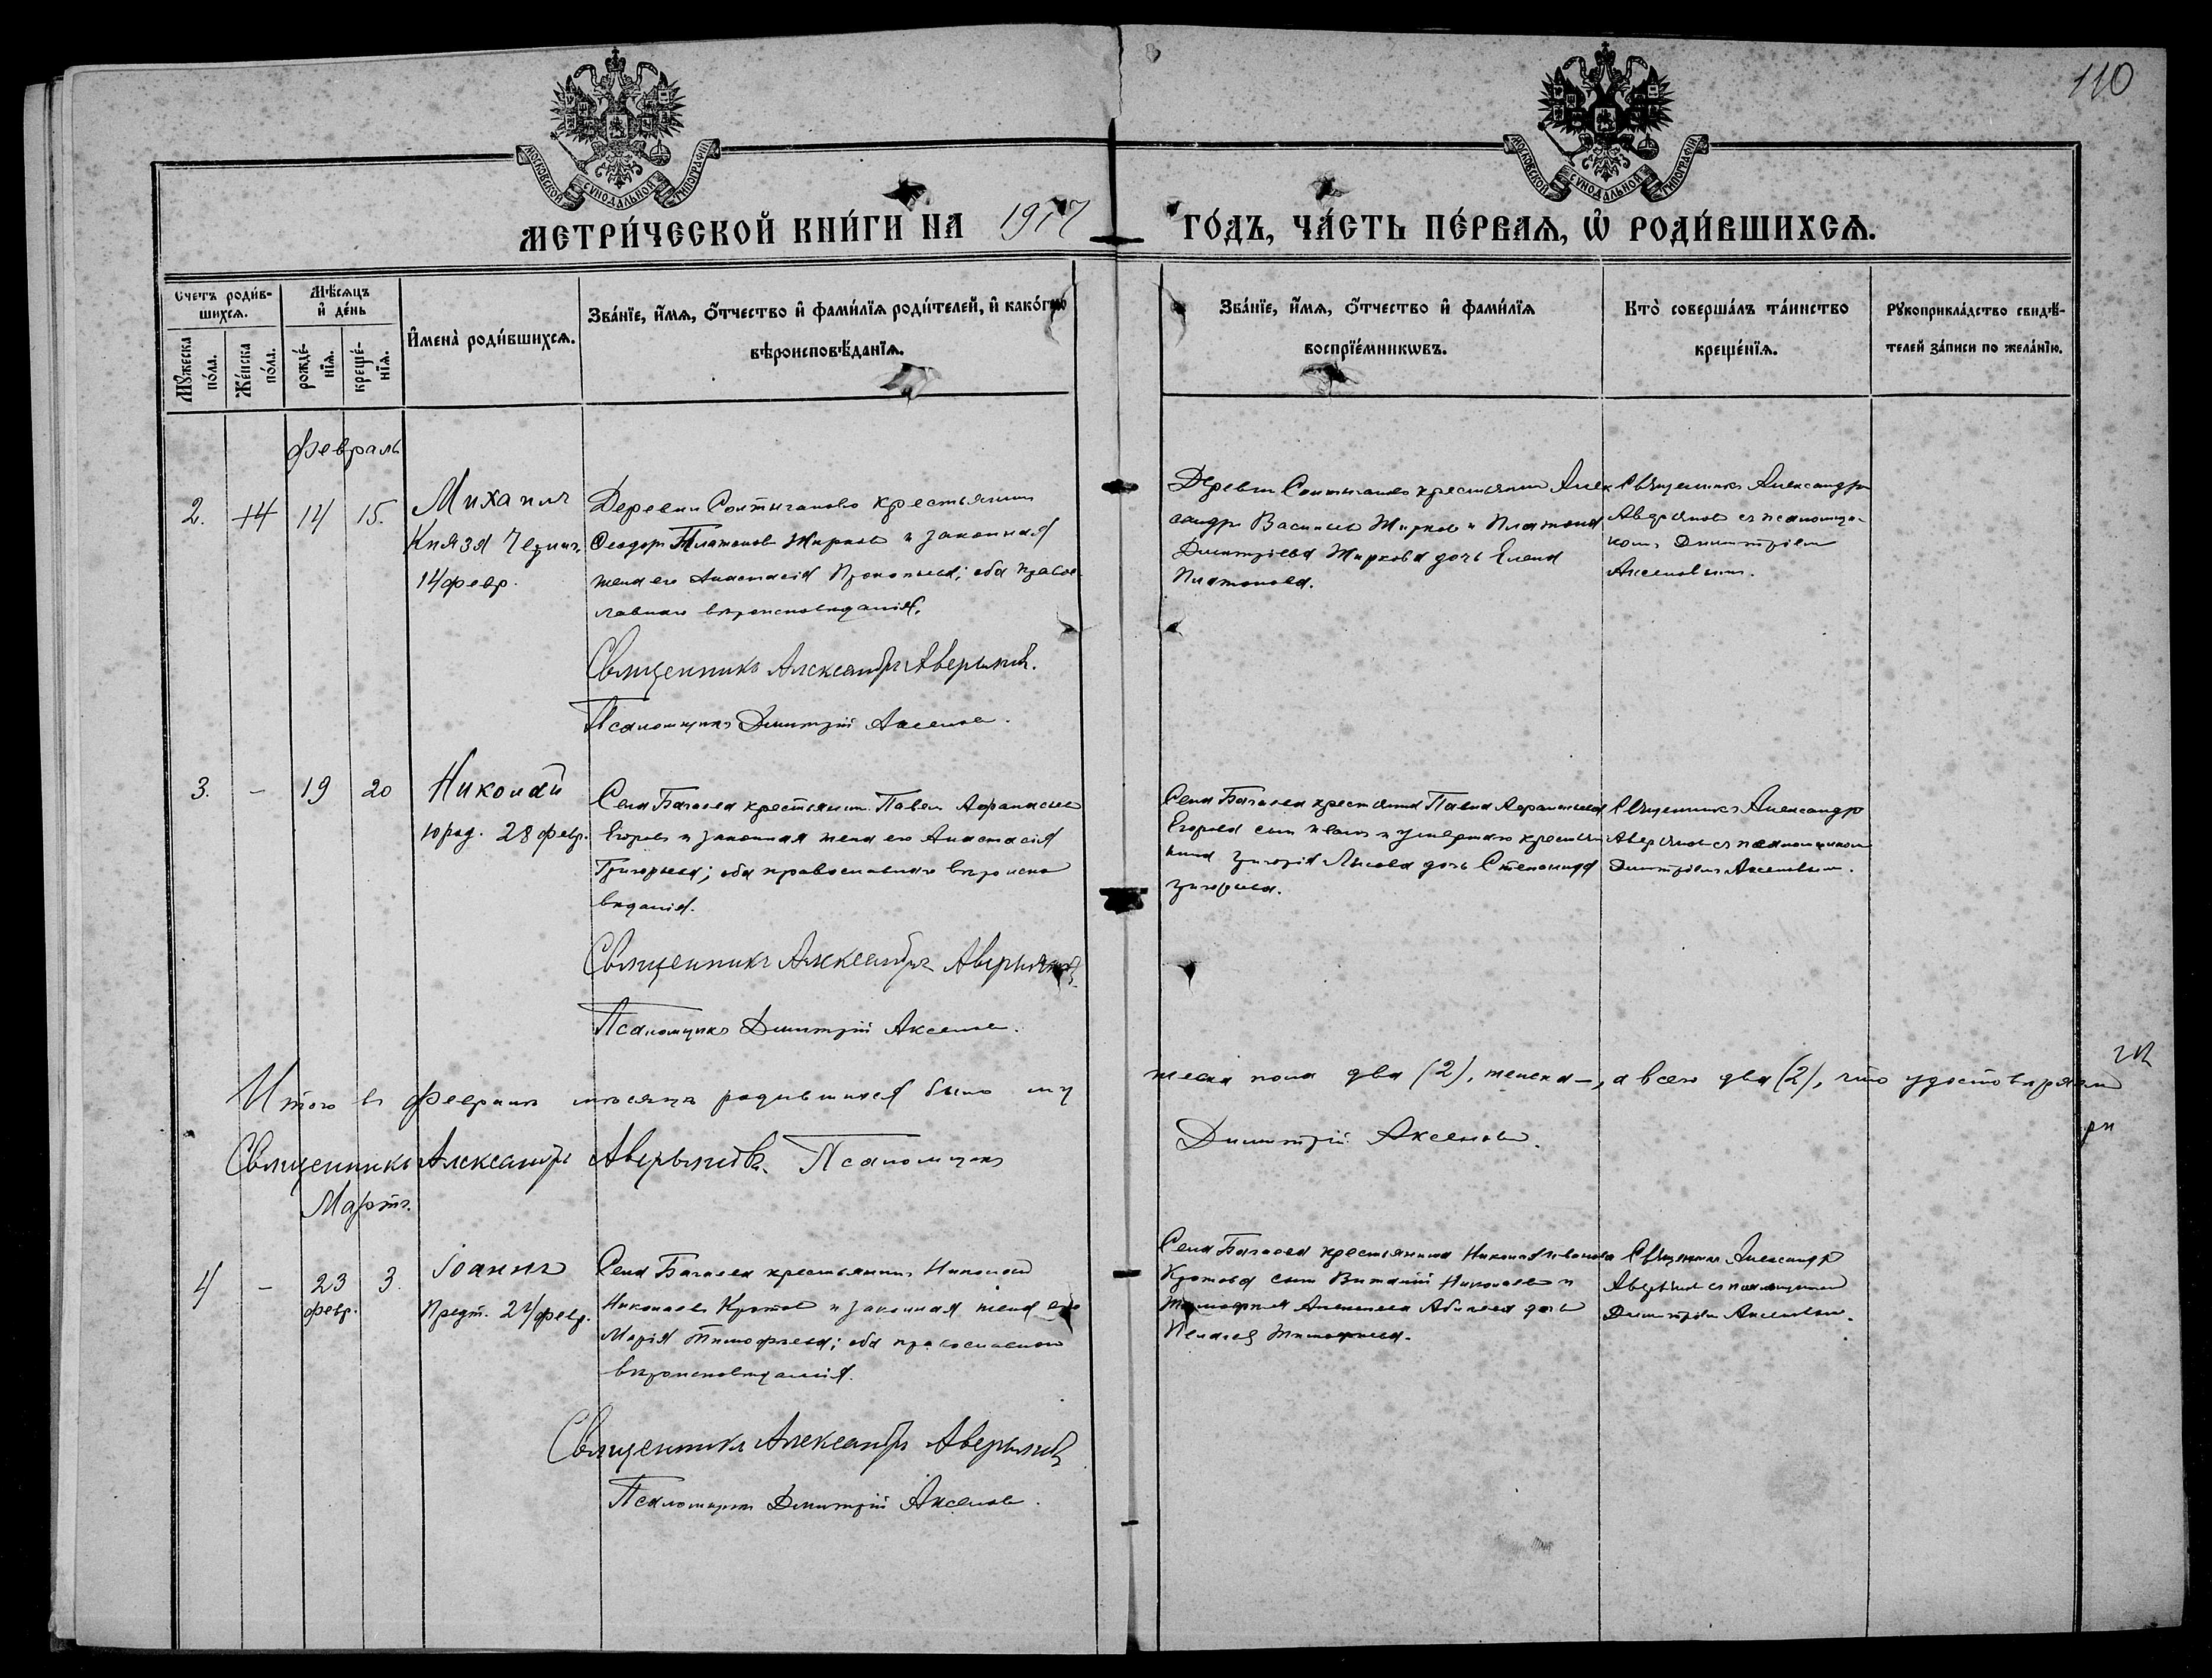 110
МОСКОВСКОЙ СѴНОДАЛЬНОЙ ТИПОГРАФІИ
МОСКОВСКОЙ СѴНОДАЛЬНОЙ ТИПОГРАФІИ
МЕТРИ́ЧЕСКОЙ КНИ́ГИ НА 1917 ГО́ДЪ, ЧА́СТЬ ПЕ́РВАѦ, Ѡ҆ РОДИ́ВШИХСѦ.
Счетъ роди́в-
шихсѧ.
Мꙋжеска по́ла.
Же́нска по́ла.
Мѣ́сѧцъ и҆ де́нь
рожде́-
нїѧ.
креще́-
нїѧ.
И҆мена̀ роди́вшихсѧ.
Зва́нїе, и҆́мѧ, ѻ҆́тчество и҆ фами́лїѧ роди́телей, и҆ како́гѡ
вѣроисповѣ́данїѧ.
Зва́нїе, и҆́мѧ, ѻ҆́тчество и҆ фами́лїѧ
воспрїе́мникѡвъ.
Кто̀ соверша́лъ та́инство
креще́нїѧ.
Рꙋкоприкла́дство свидѣ́-
телей за́писи по жела́нїю.
Февраль
2.
14
14
15.
Михаилъ
Князя Черниг.
14 февр.
Деревни крестьянинъ
Ѳеодоръ Платоновъ Жирковъ и законная
жена его Анастасія Прокопьева; оба правос-
лавнаго вѣроисповѣданія.
Священникъ Александръ Аверьяновъ.
Псаломщикъ Димитрій Аксеновъ.
Деревни крестьянинъ Алек
сандръ Васильевъ Жирковъ и Платона
Димитріева Жиркова дочь Елена
Платонова.
Священникъ Александръ
Аверьяновъ съ псаломщи-
комъ Димитріемъ
Аксеновымъ.
3.
-
19
20
Николай
Юрод. 28 февр.
Села Багаева крестьянинъ Павелъ Аѳанасьевъ
Егоровъ и законная жена его Анастасія
Григорьева; оба православнаго вѣроиспо
вѣданія.
Священникъ Александръ Аверьяновъ
Псаломщикъ Димитрій Аксеновъ.
Села Багаева крестьянина Павла Аѳанасьева
Егорова сынъ и умершаго крестья
нина Григорія дочь Степанида
Григорьева.
Священникъ Александръ
Аверьяновъ съ псаломщикомъ
Димитріемъ Аксеновымъ.
Итого въ Февралѣ мѣсяцѣ родившихся было му
жеска пола два (2), женска —, а всего два (2), что удостовѣряемъ
Священникъ Александръ Аверьяновъ. Псаломщикъ
Димитрій Аксеновъ.
Мартъ.
4
-
23
февр.
3.
Іоаннъ
Предт. 24 февр.
Села Багаева крестьянинъ Николай
Николаевъ Кротовъ и законная жена его
Марія Тимофеева; оба православнаго
вѣроисповѣданія.
Священникъ Александръ Аверьяновъ
Псаломщикъ Димитрій Аксеновъ.
Села Багаева крестьянина Николая Иванова
Кротова сынъ Виталій Николаевъ и
Тимофея Алексеева дочь
Пелагея Тимофеева.
Священникъ Александръ
Аверьяновъ съ псаломщикомъ
Димитріемъ Аксеновымъ.